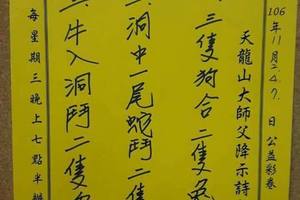 106年11月24.7.日公益彩卷
天龍山大師父降示詩
三隻狗合二隻兔
洞中一尾蛇鬥二隻
牛入洞鬥二隻
每星期三晚上七點半辦